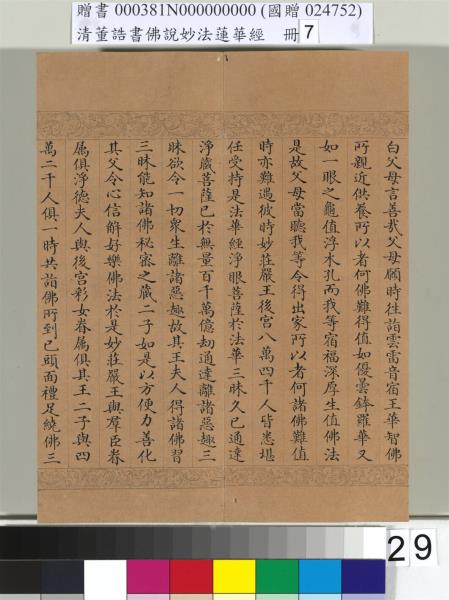 贈書 000381N000000000 (國贈 024752)
清董誥書佛說妙法蓮華經 冊 7
白父母言善哉父母願時往詣雲雷音宿王華智佛
所親近供養所以者何佛難得值如優曇鉢羅華又
如一眼之龜值浮木孔而我等宿福深厚生值佛法
是故父母當聽我等令得出家所以者何諸佛難值
時亦難遇彼時妙莊嚴王後宮八萬四千人皆悉堪
任受持是法華經淨眼菩薩於法華三昧久已通達
淨藏菩薩已於無量百千萬億劫通達離諸惡趣三
昧欲令一切眾生離諸惡趣故其王夫人得諸佛習
三昧能知諸佛秘密之藏二子如是以方便力善化
其父令心信解好樂佛法於是妙莊嚴王與羣臣眷
屬俱淨德夫人與後宮彩女眷屬俱其王二子與四
萬二千人俱一時共詣佛所到已頭面禮足繞佛三
29